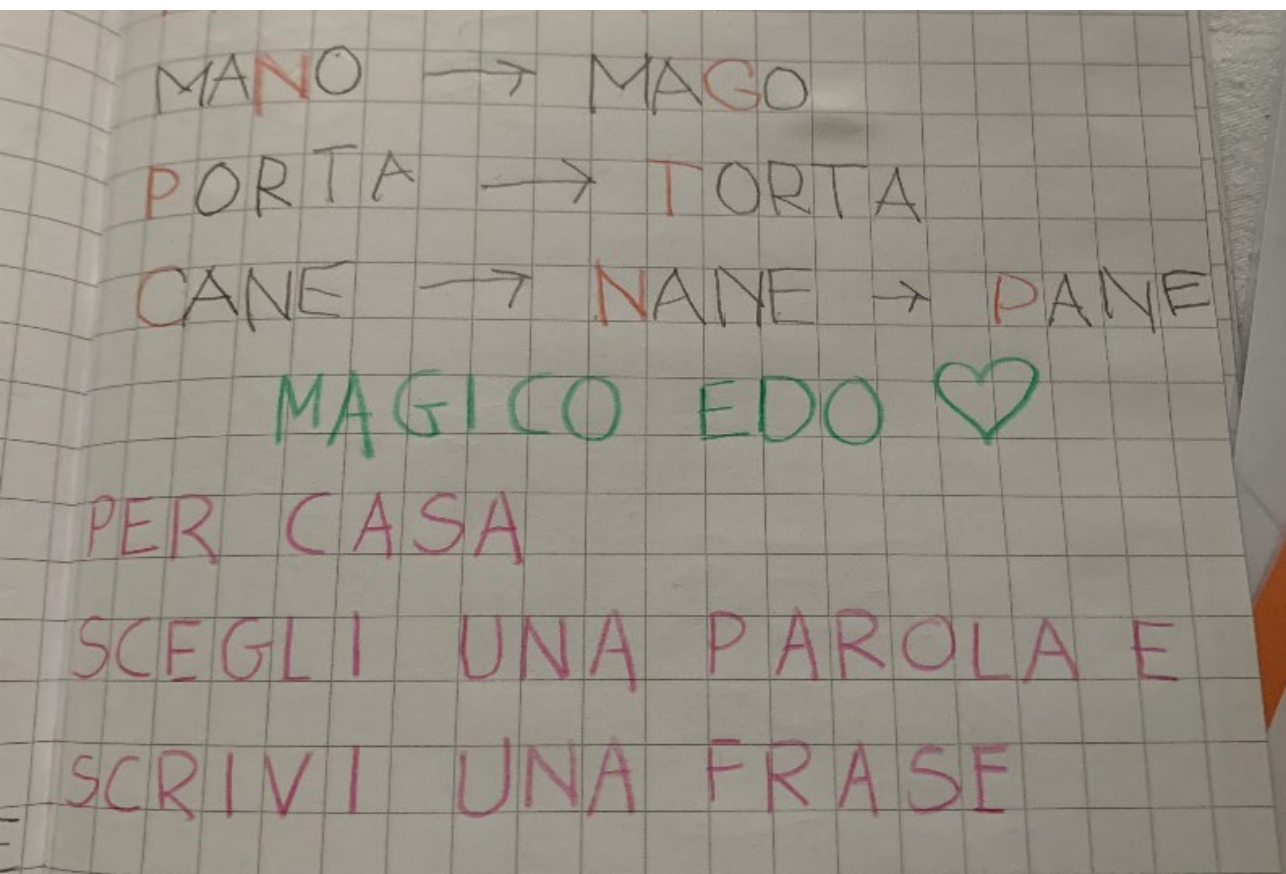 MANO → MAGO
PORTA → TORTA
CANE → NANE → PANE
MAGICO EDO ♡
PER CASA
SCEGLI UNA PAROLA E
SCRIVI UNA FRASE